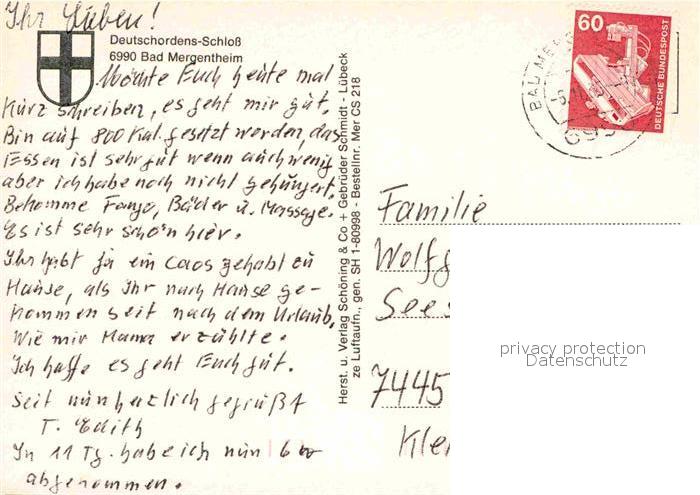 Ihr Lieben!
Deutschordens-Schloß
6990 Bad Mergentheim
Möchte Euch heute mal
Kurz schreiben, es geht mir gut.
Bin auf 800 Kal. gesetzt worden, das
Essen ist sehr gut wenn auch wenig
aber ich habe noch nicht gehungert.
Bekomme Fango, Bäder u. Massage.
Es ist sehr schön hier.
Ihr habt ja ein Caos gehabt zu
Hause, als Ihr nach Hause ge-
kommen seit nach dem Urlaub,
Wie mir Mama erzählte.
Ich hoffe es geht Euch gut.
Seit nun herzlich gegrüßt
T. Edith
In 11 Tg. habe ich nun 6
abgenommen.
Herst. u. Verlag Schöning & Co + Gebrüder Schmidt - Lübeck
ze Luftaufn., gen. SH 1-80998 - Bestellnr. Mer CS 218
60
DEUTSCHE BUNDESPOST
BAD MERG
Familie
Wolfg
See
7445
Kle
privacy protection
Datenschutz